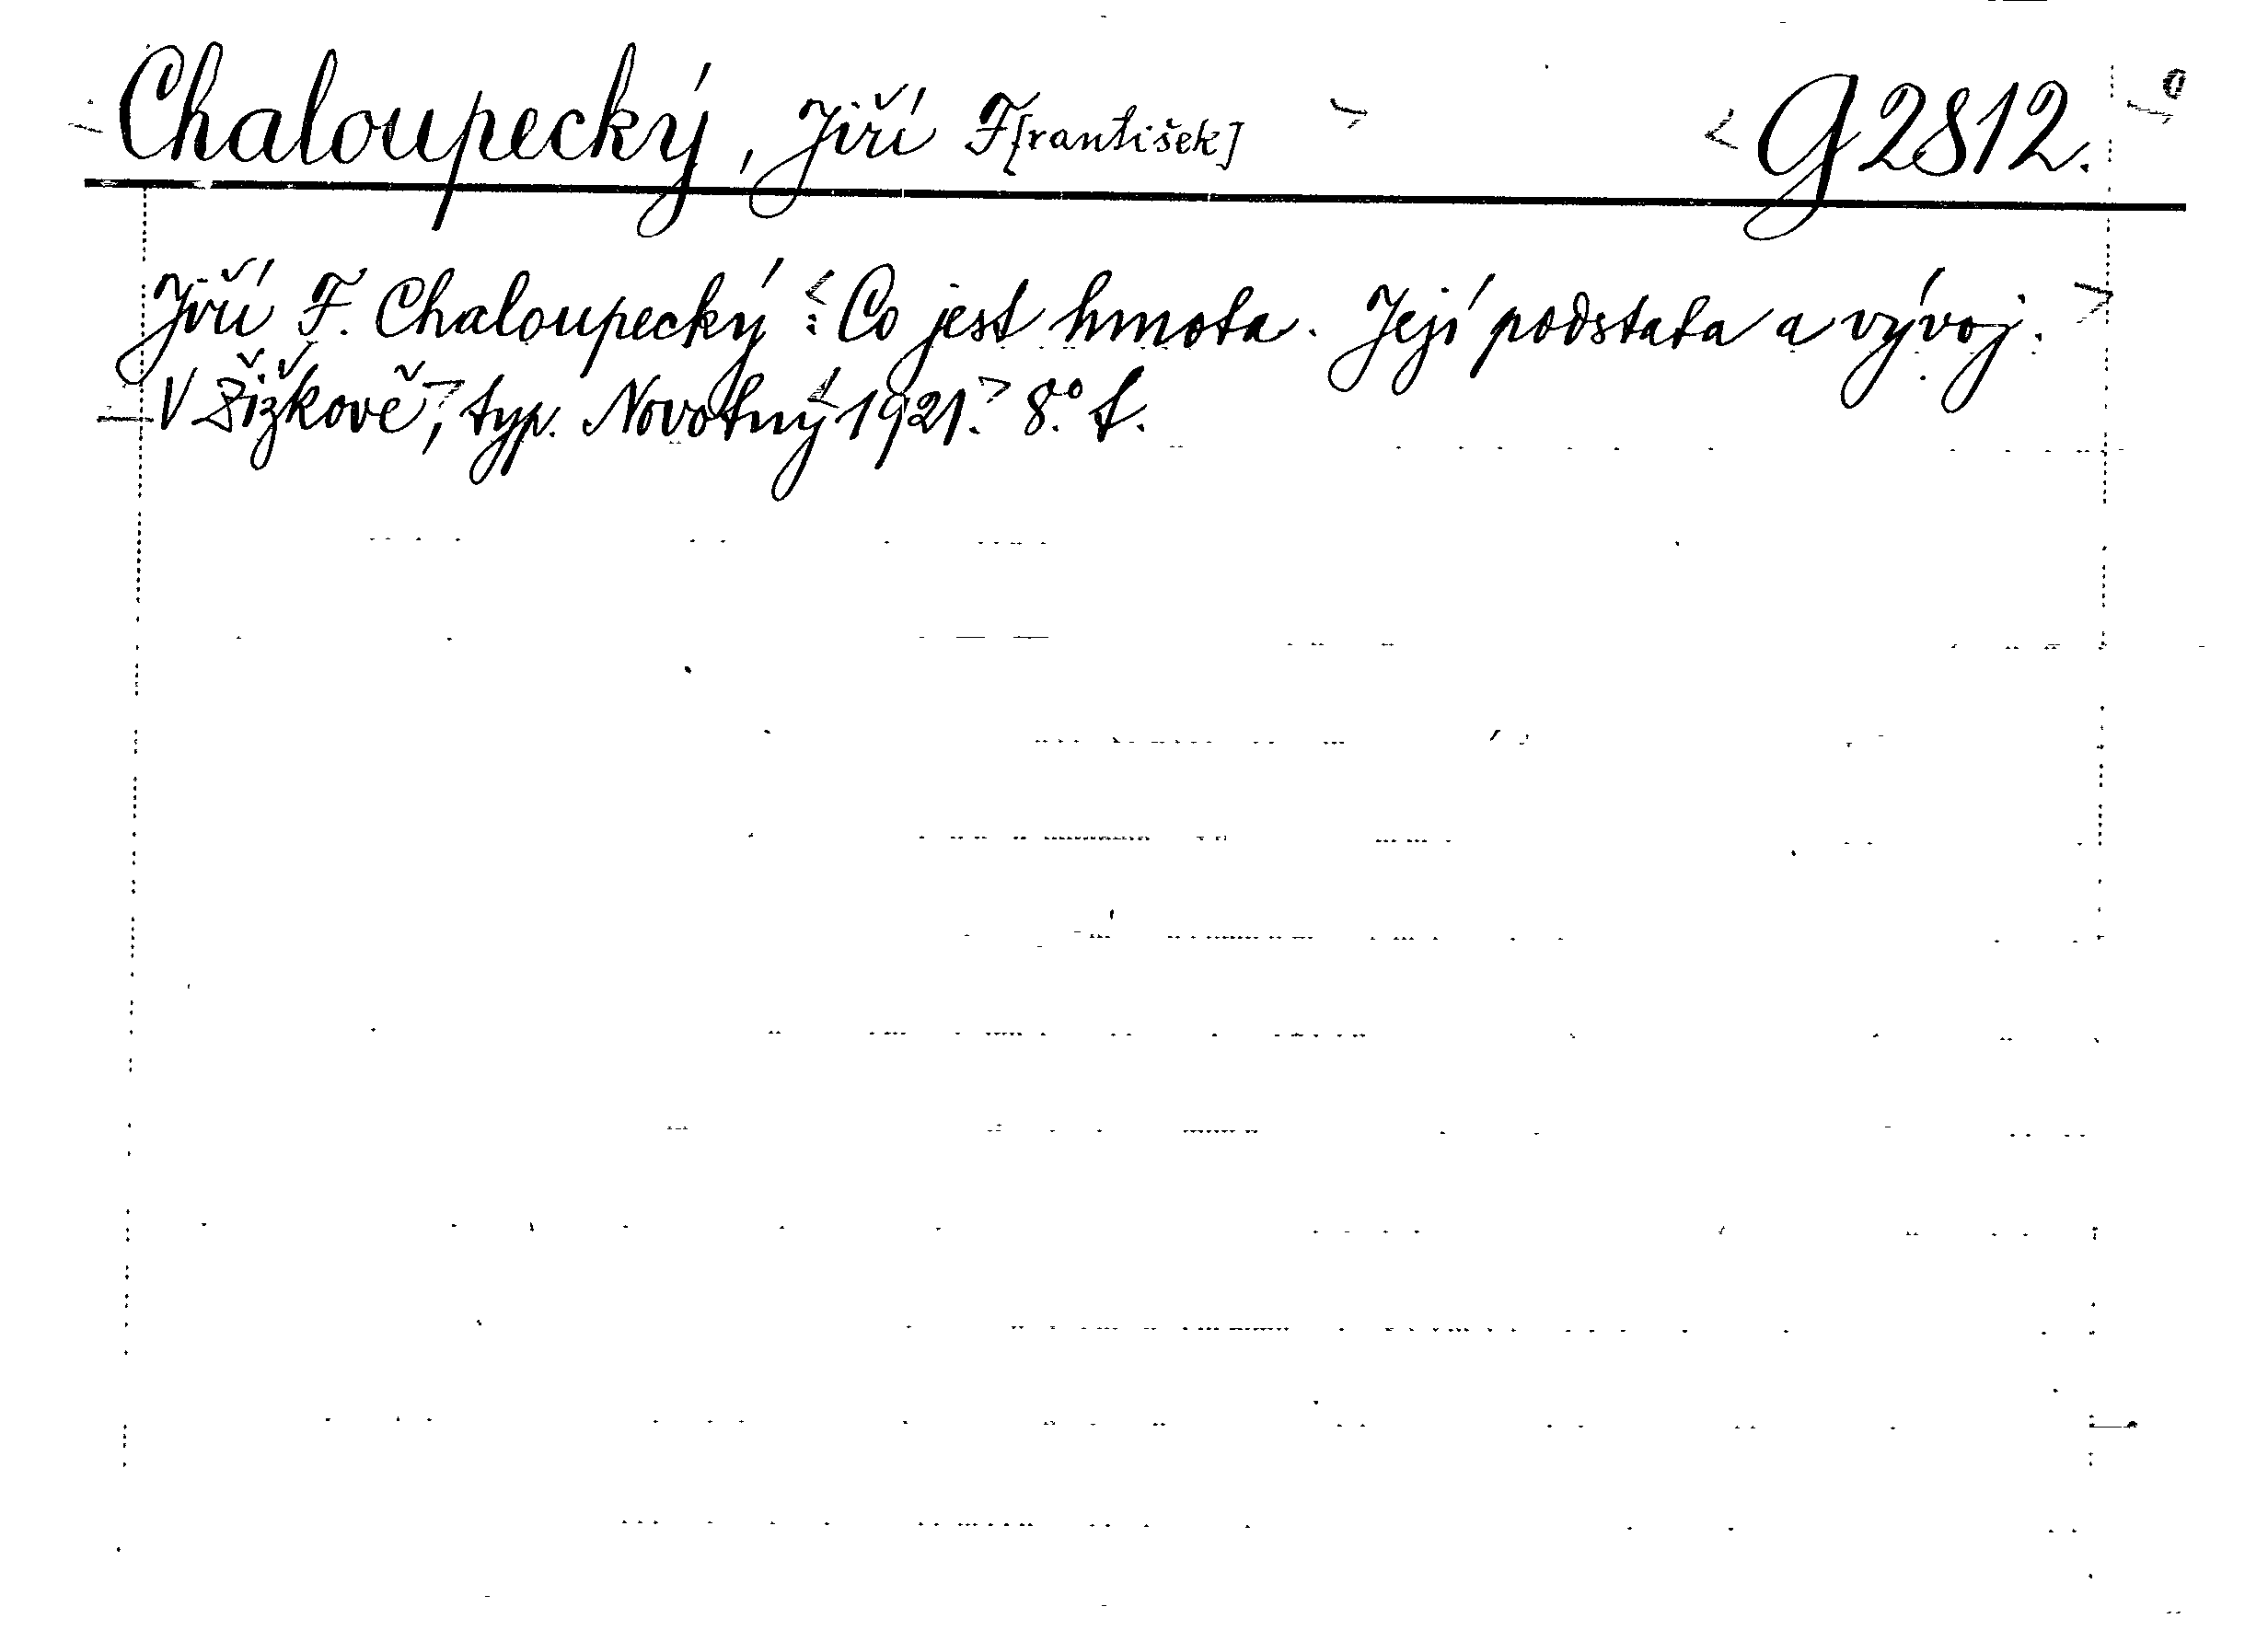 Chaloupecký, Jiří F[rantišek] G 2812.
Jiří F. Chaloupecký : Co jest hmota. Její podstata a vývoj.
V Žižkově, typ. Novotný 1921. 8.° f.